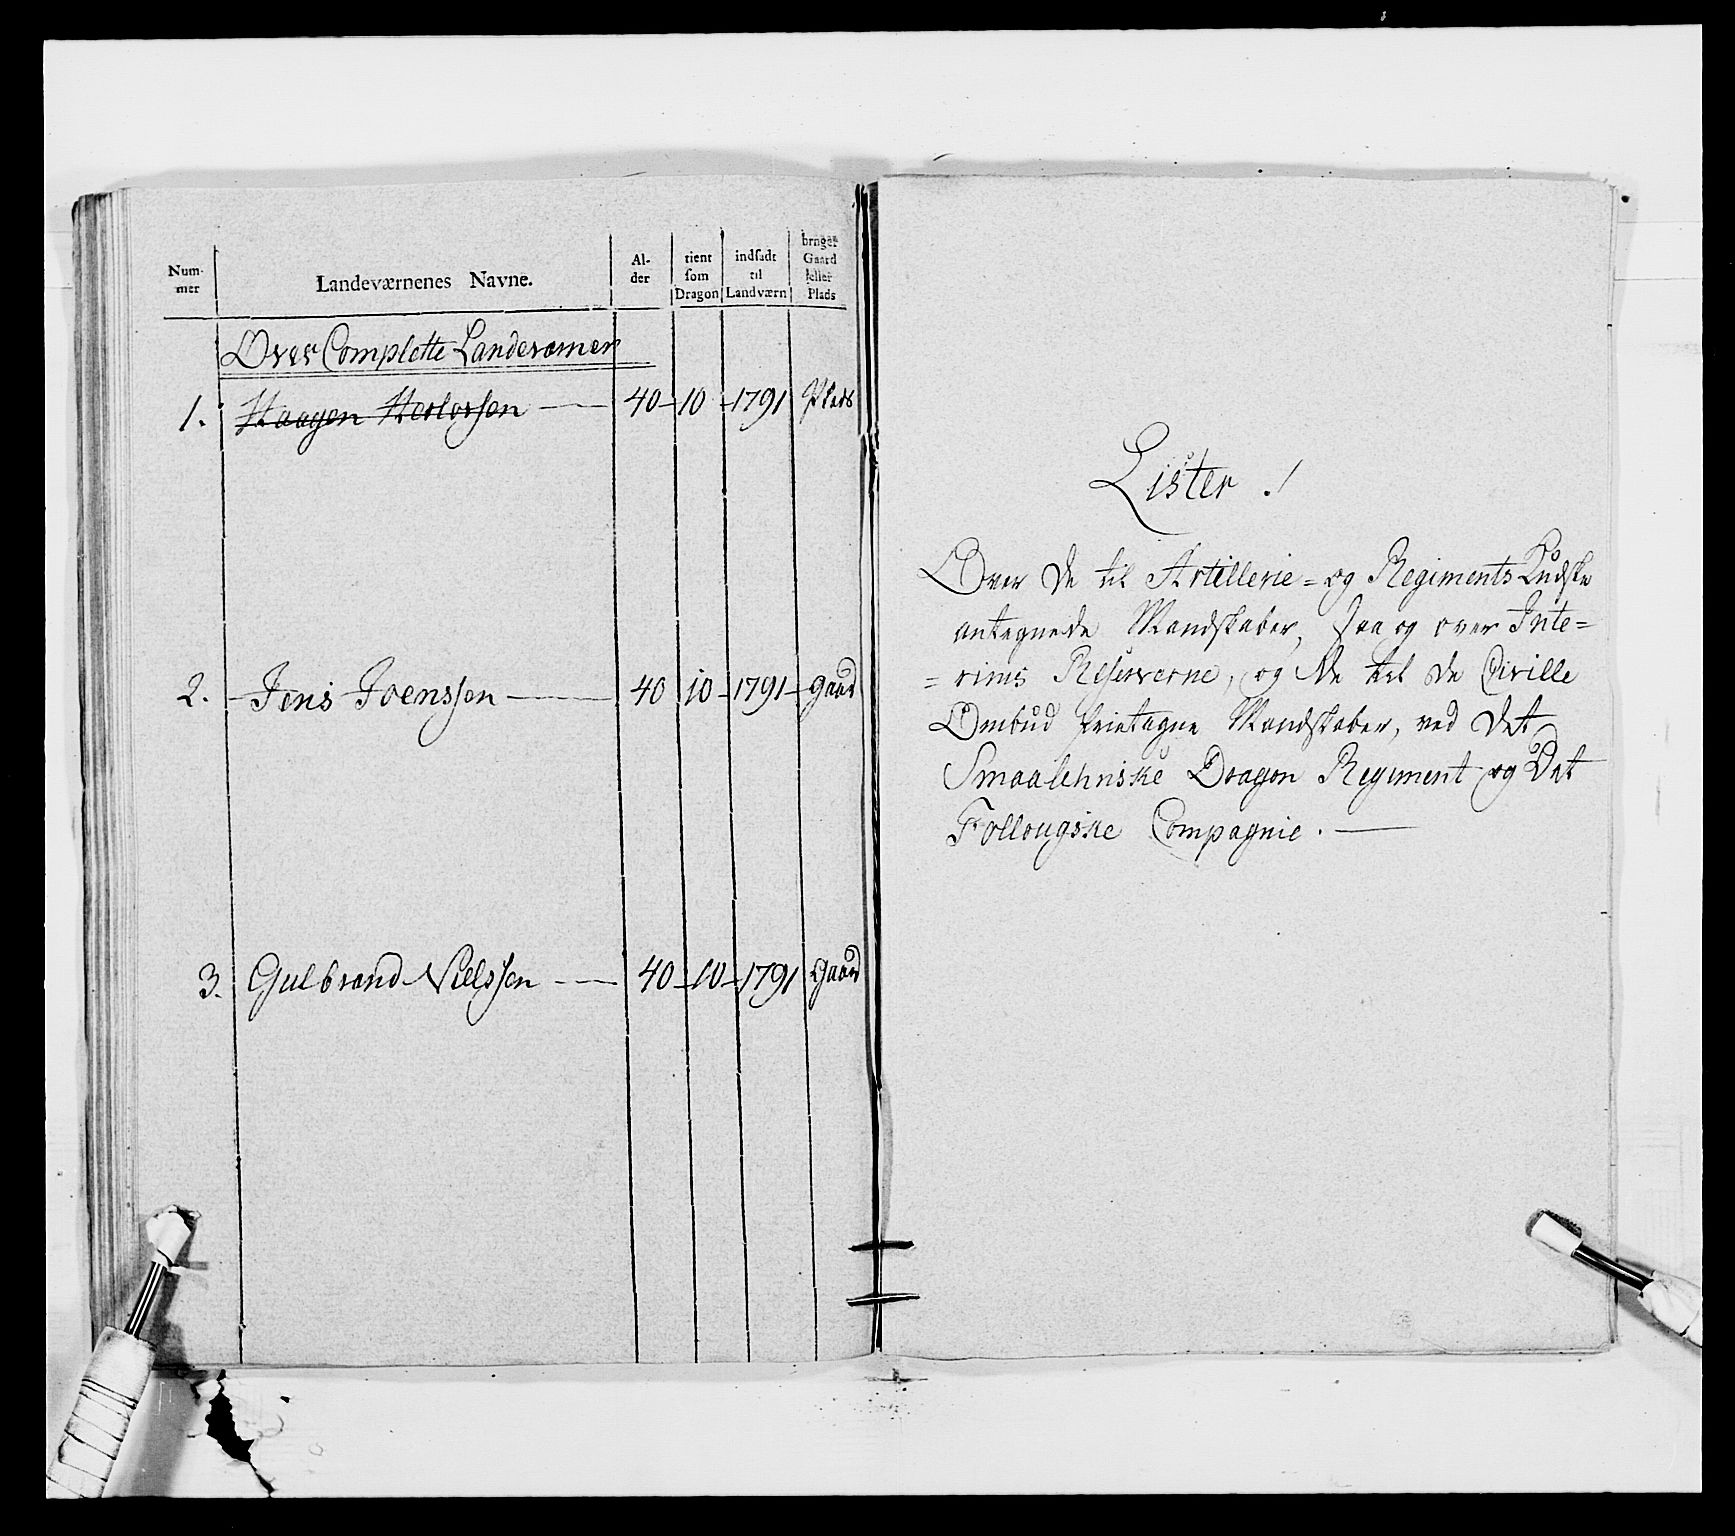 Num-
mer
Landeværnenes Navne.
Al-
der
tient
som
Dragon
indsadt
til
Landværn
bruger
Gaard
eller
Plads
Over Complette Landeværner
1. Haagen Herlofsen 40 10 1791 Plads
2. Jens Joenssen 40 10 1791 gaard
3. Gulbrand Nielssen 40 10 1791 Gaard
Lister
Over de til Artillerie= og Regiments Kudske
antegnede Mandskaber, saa og over Inte=
=rims Reserverne, og de til de Civille
Ombud frietagne Mandskaber, ved det
Smaalehniske Dragon Regiment og Det
Follougske Compagnie.